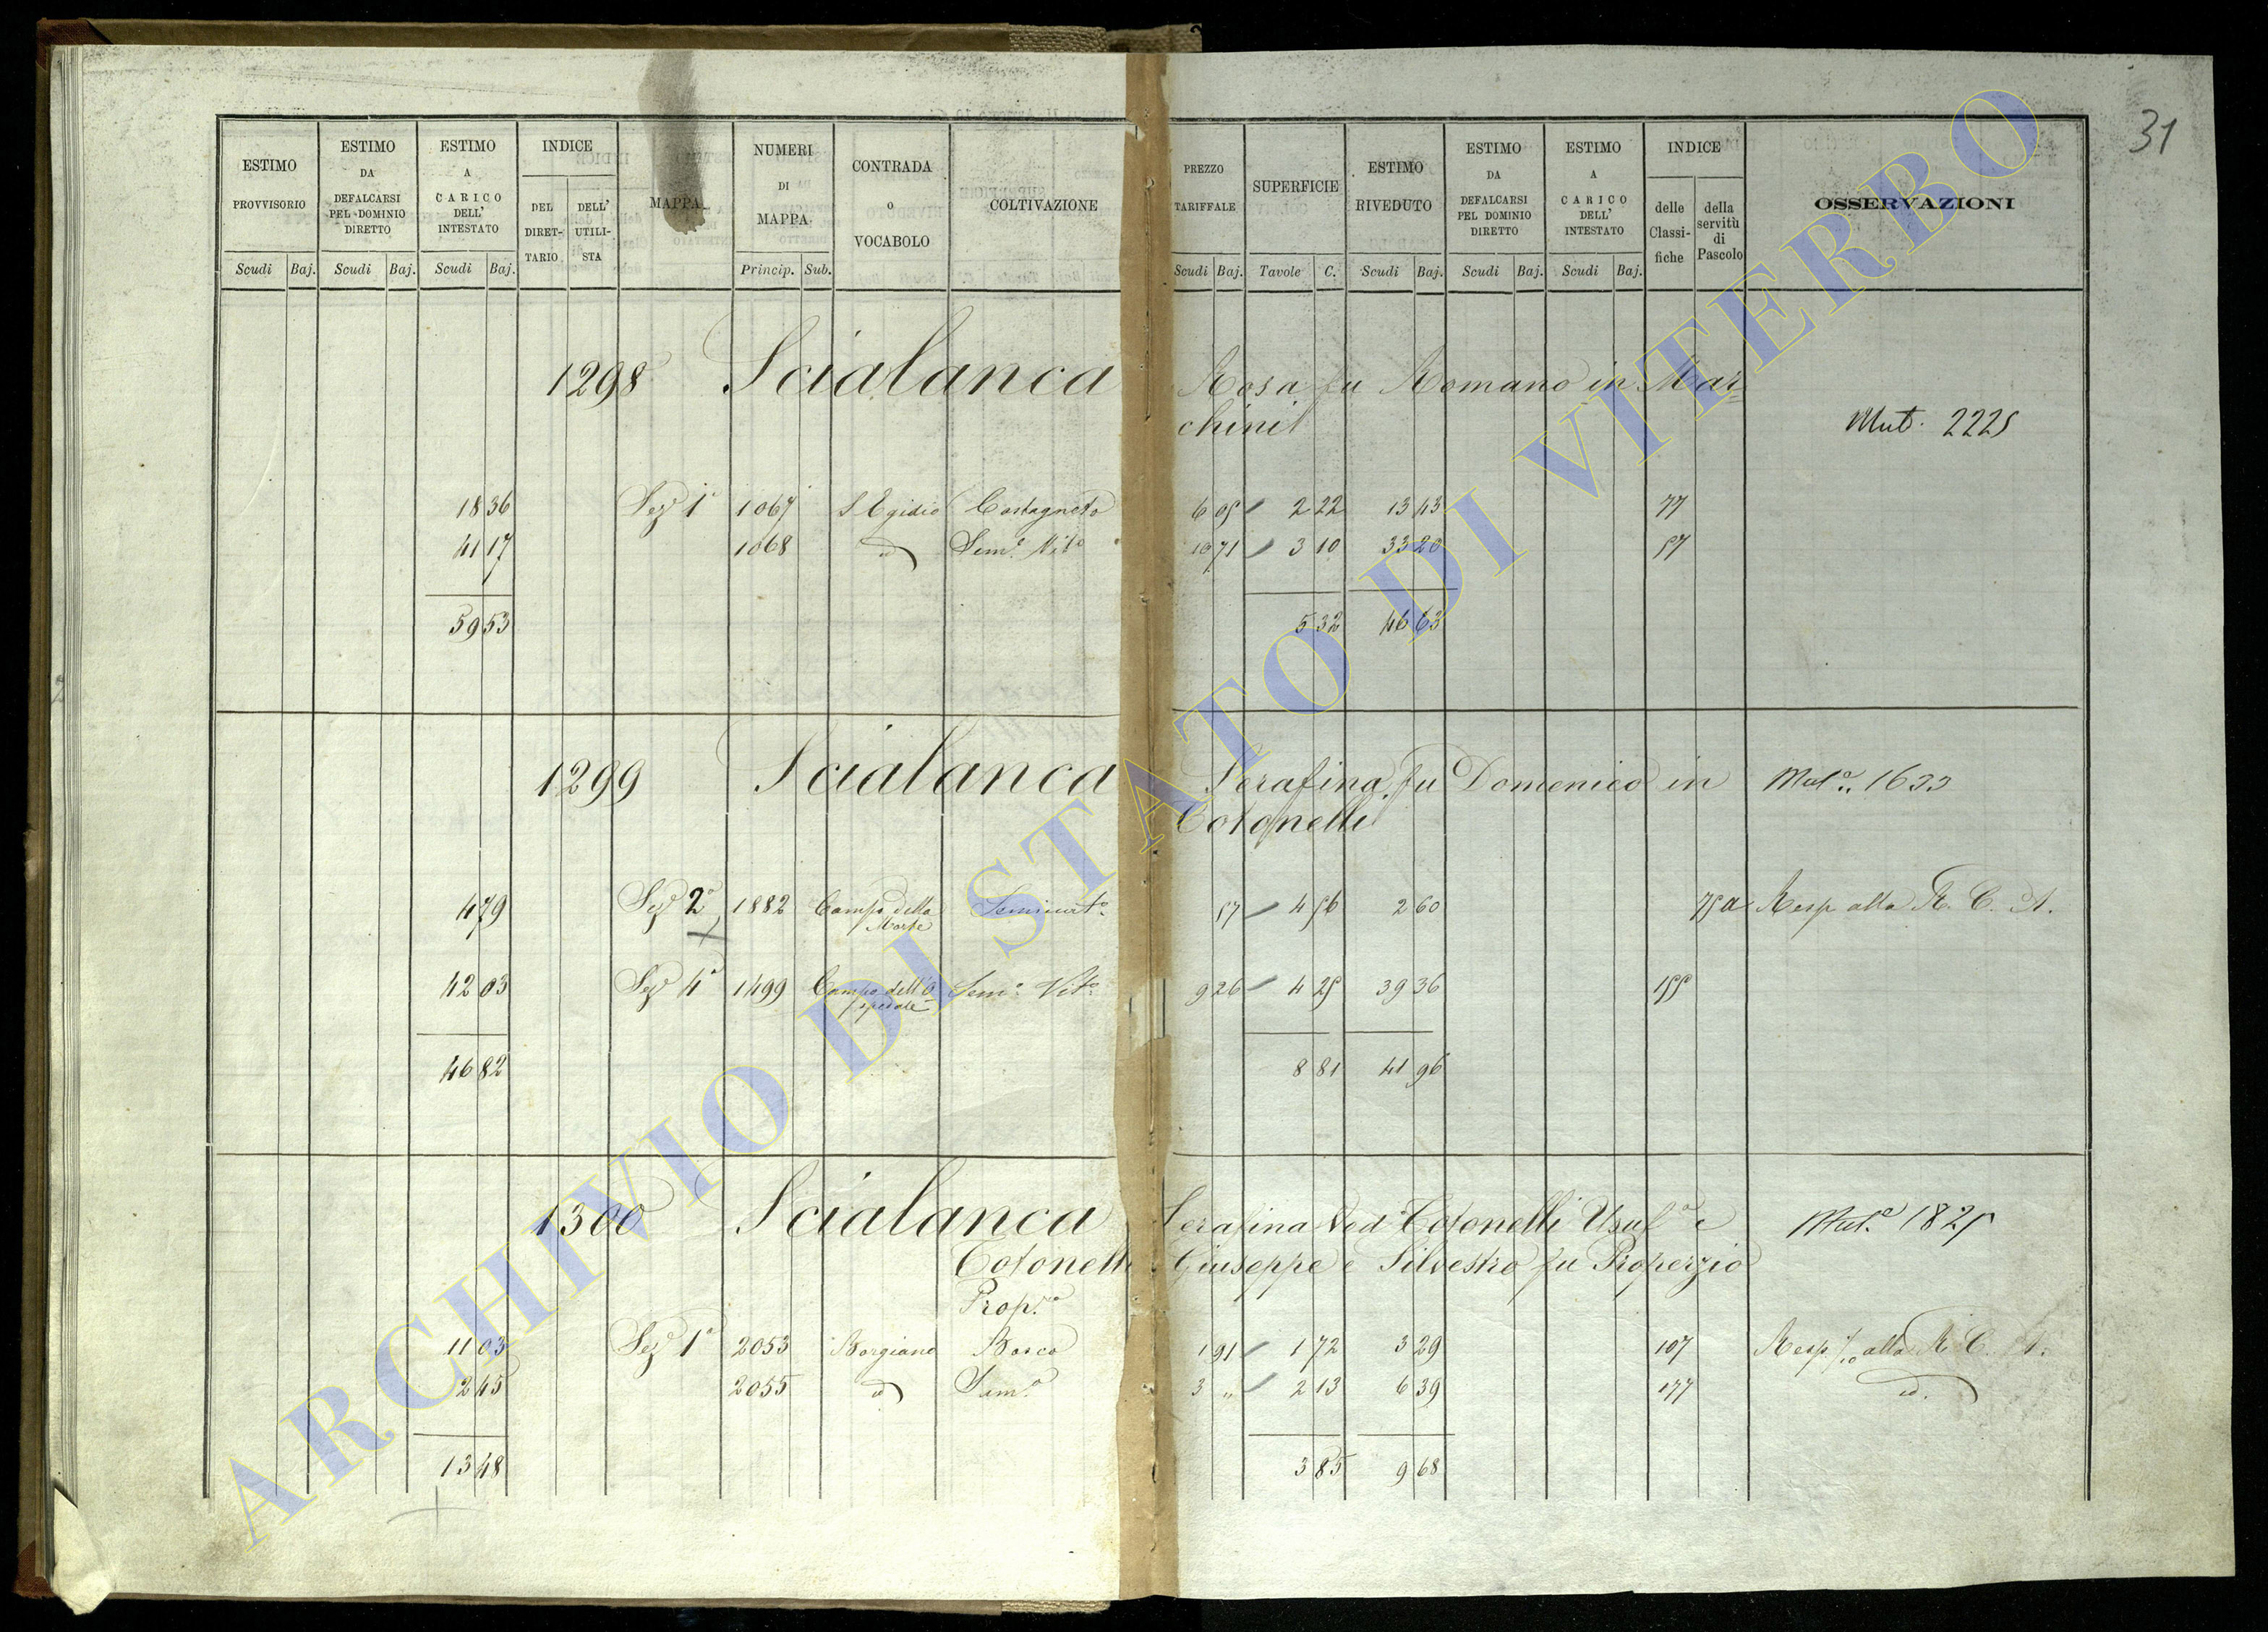 31
ESTIMO PROVVISORIO
ESTIMO DA DEFALCARSI PEL DOMINIO DIRETTO
ESTIMO A CARICO DELL' INTESTATO
INDICE
DEL DIRETTARIO
DELL' UTILISTA
MAPPA
NUMERI DI MAPPA
CONTRADA o VOCABOLO
COLTIVAZIONE
PREZZO TARIFFALE
SUPERFICIE
ESTIMO RIVEDUTO
ESTIMO DA DEFALCARSI PEL DOMINIO DIRETTO
ESTIMO A CARICO DELL' INTESTATO
INDICE
delle Classifiche
della servitù di Pascolo
OSSERVAZIONI
Scudi Baj. Scudi Baj. Scudi Baj. Princip. Sub. Scudi Baj. Tavole C. Scudi Baj. Scudi Baj. Scudi Baj.
1298 Scialanca Rosa fu Romano in Mar=
chini
Mut. 2225
18 36 Sez 1ª 1067 S Egidio Castagneto 6 05 2 22 13 43 77
41 17 1068 id Sem.º Vit.º 10 71 3 10 33 20 57
59 53 5 32 46 63
1299 Scialanca Serafina fu Domenico in Mut.ª 1633
Cotonelli
4 79 Sez 2ª 1882 Campo della Morte Seminat.º 57 4 56 2 60 75 a Resp alla R. C. A.
42 03 Sez 4ª 1499 Campo dell'Ospedale Sem.º Vit.º 9 26 4 25 39 36 155
46 82 8 81 41 96
1300 Scialanca Serafina Ved Cotonelli Usuf.ª e Mut.ª 1825
Cotonelli Giuseppe e Silvestro fu Properzio
Prop.
11 03 Sez 1ª 2053 Borgiano Bosco 1 91 1 72 3 29 107 Resp. alla R. C. A.
2 45 2055 id Sem.º 3 " 2 13 6 39 177 id.
13 48 3 85 9 68
ARCHIVIO DI STATO DI VITERBO